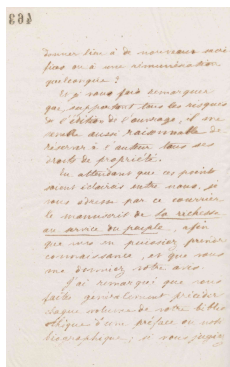 493
donner lieu à de nouveaux sacri-
fices ou à une rémunération
quelconque ?
Et je vous fais remarquer
que supportant tous les risques
de l'édition de l'ouvrage, il me
semble aussi raisonnable de
réserver à l'auteur tous ses
droits de propriété.
En attendant que ces points
soient éclaircis entre nous, je
vous adresse par ce courrier
le manuscrit de la richesse
au service du peuple, afin
que vous en puissiez prendre
connaissance, et que vous
me donniez votre avis.
J'ai remarqué que vous
faites généralement précéder
chaque volume de votre biblio-
thèque d'une préface ou note
biographique ; si vous jugiez